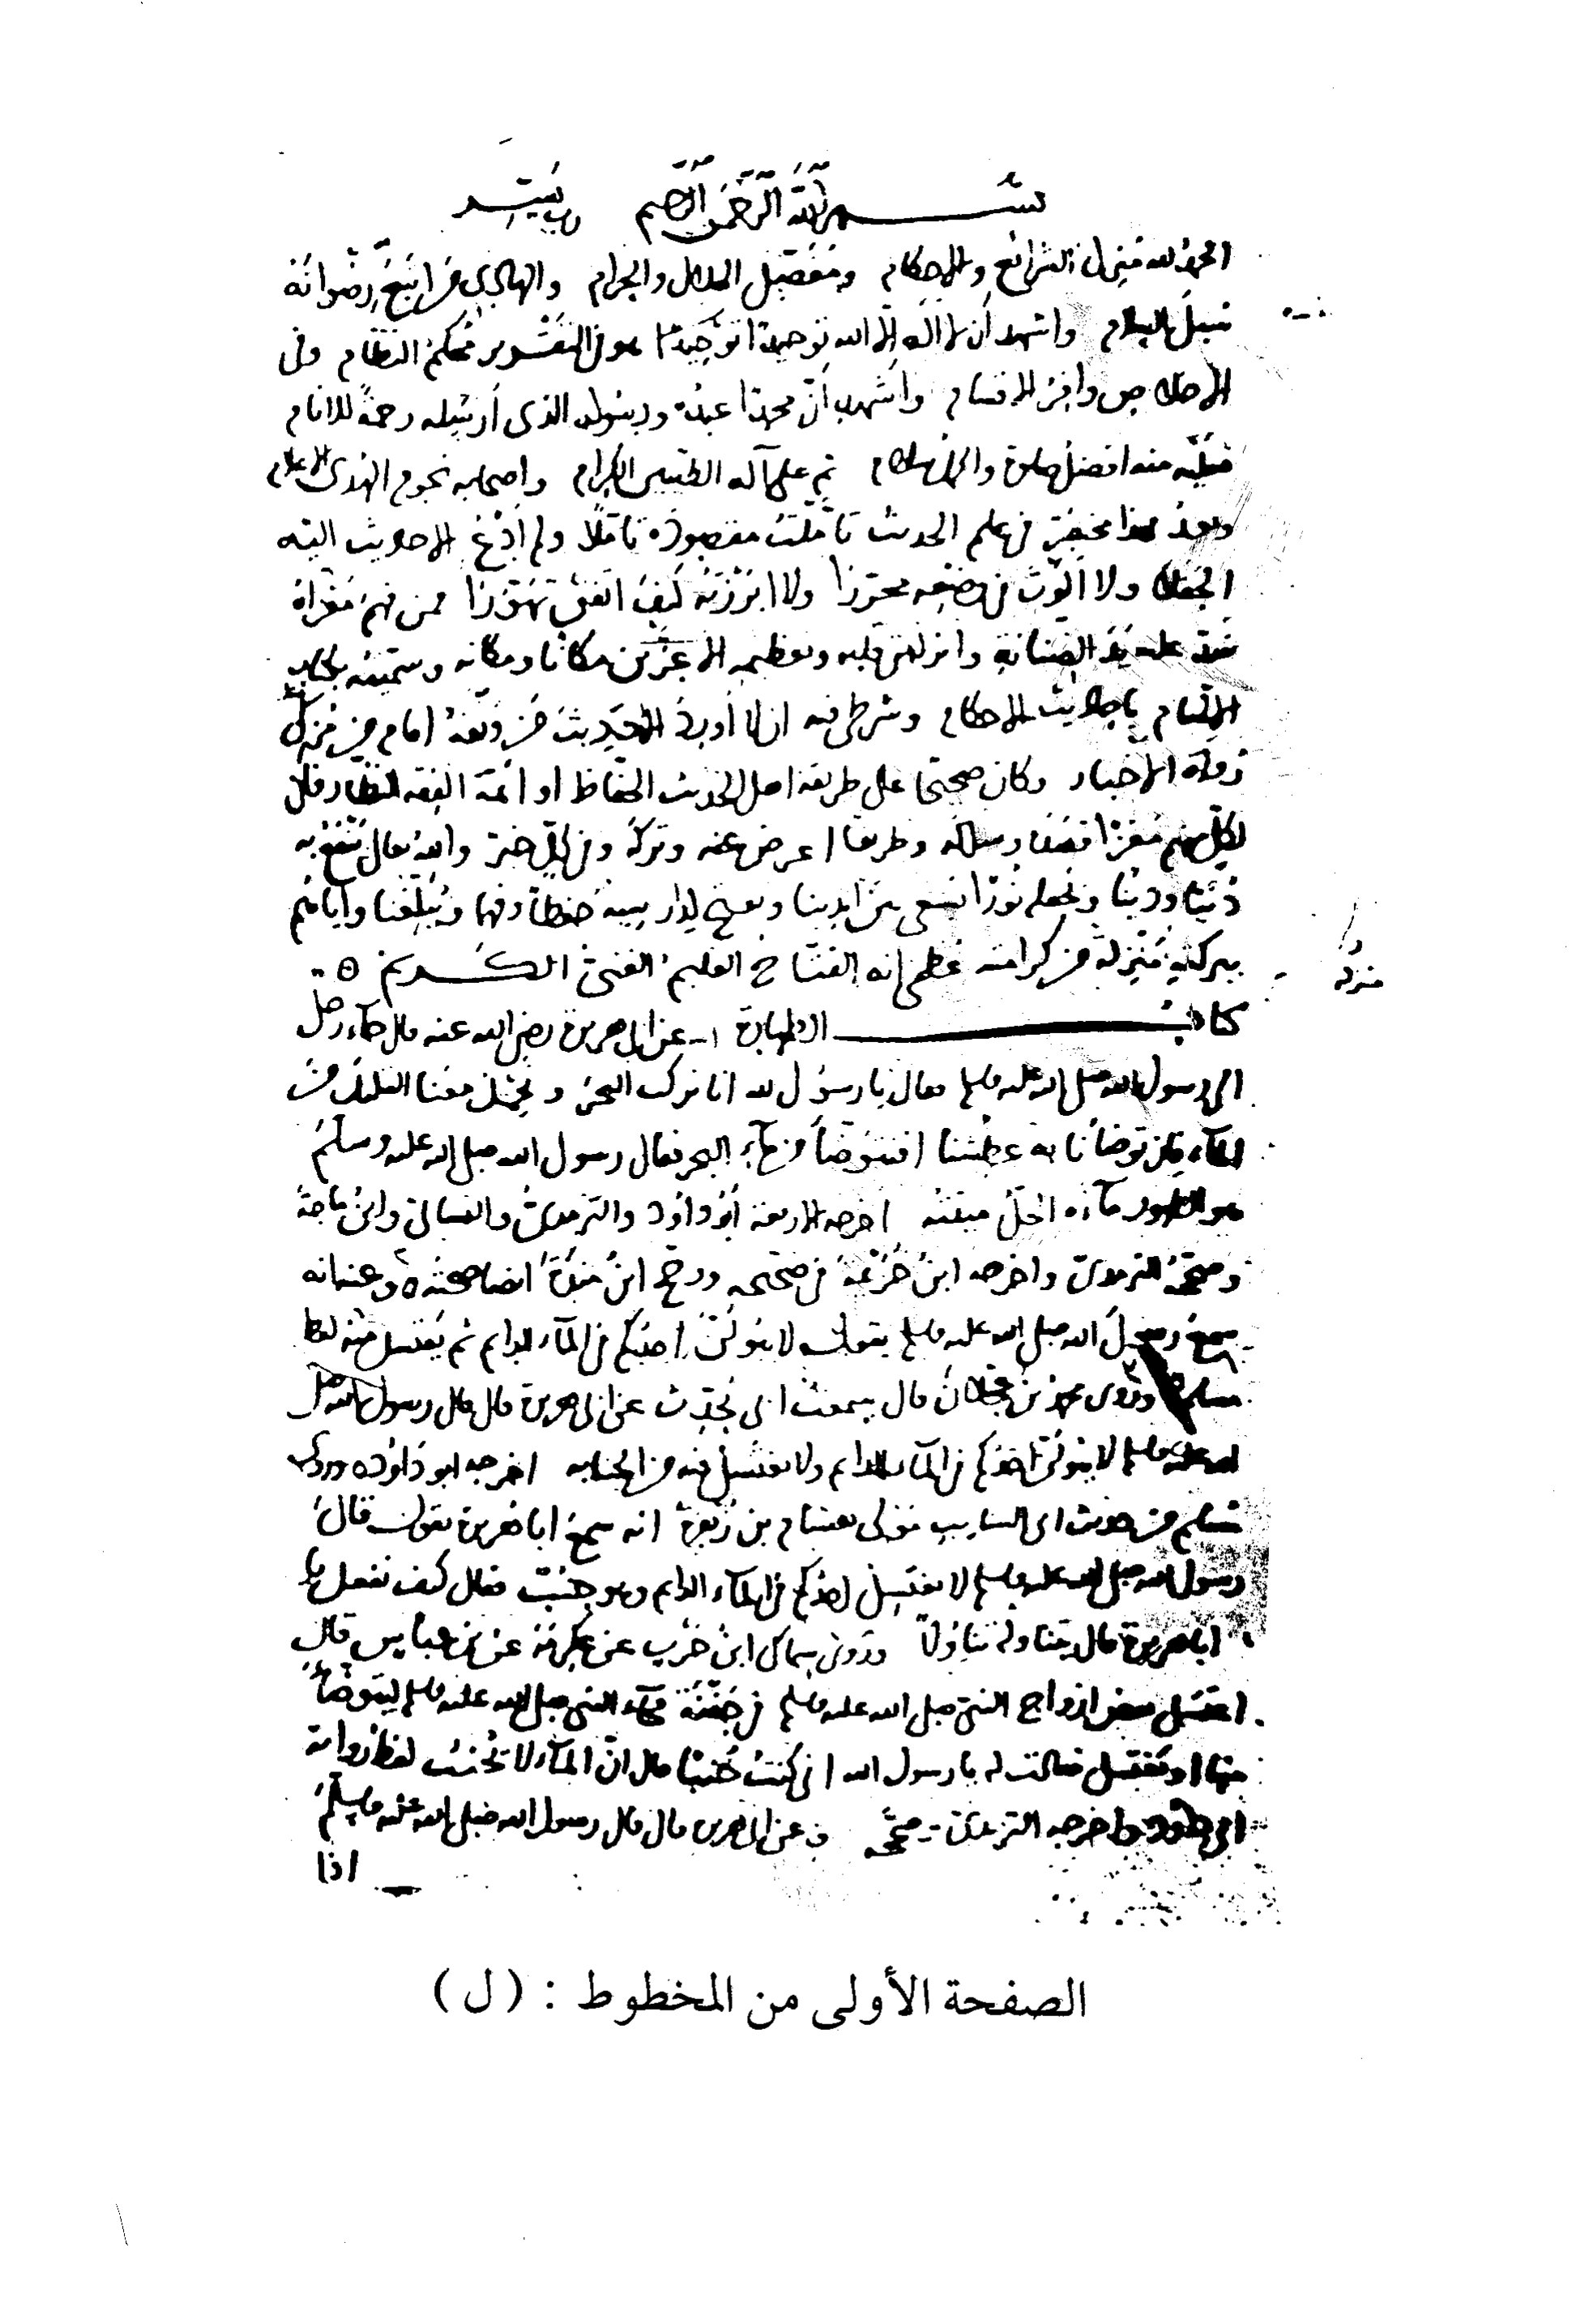 بسم الله الرحمن الرحيم رب يسر
الحمد لله منزل الشرائع والاحكام ومفصل الحلال والحرام والهادي من اتبع رضوانه
سبل السلام واشهد أن لا اله الا الله توحيدا هو في التقرير محكم النظام وفي
الاخلاص وافر الاقسام وأشهد أن محمدا عبده ورسوله الذي أرسله رحمة للانام
فعليه منه افضل صلوة واكمل سلام ثم على آله الطيبين الكرام واصحابه نجوم الهدى الاعلام
وبعد فهذا مختصر في علم الحديث تأملت مقصوده تأملا ولم أدع الاحاديث اليه
الجفلى ولا ألوت في وضعه محررا ولا ابرزته كيف اتفق تهورا فمن فهم مغزاه
شد عليه يد الضنانة وانزله من قلبه وتعظيمه الاعزين مكانا ومكانة وسميته بكتاب
الالمام باحاديث الاحكام وشرطي فيه ان لا أورد الا حديث من وثقه امام من مزكي
رواة الاخبار وكان صحيحا على طريقة اهل الحديث الحفاظ او ائمة الفقه النظار فان
لكل منهم مغزا قصده وسلكه وطريقا اعرض عنه وتركه وفي كل خير والله تعالى ينفع به
دنيا ودينا ويجعله نورا يسعى بين ايدينا ويفتح لدارسيه حفظا وفهما ويبلغنا واياهم
ببركته منزلة من كرامته عظمى انه الفتاح العليم الغني الكريم
منزلة
كتاب الطهارة ١- عن ابي هريرة رضي الله عنه قال جاء رجل
الى رسول الله صلى الله عليه وسلم فقال يا رسول الله انا نركب البحر ونحمل معنا القليل من
الماء فان توضأنا به عطشنا افنتوضأ من ماء البحر فقال رسول الله صلى الله عليه وسلم
هو الطهور مآؤه الحل ميتته اخرجه الاربعة أبو داود والترمذي والنسائي وابن ماجة
وصححه الترمذي واخرجه ابن خزيمة في صحيحه ورجح ابن مندة ايضا صحته وعنه انه
سمع رسول الله صلى الله عليه وسلم يقول لا يبولن احدكم في المآء الدايم ثم يغتسل منه لفظ
مسلم وروى محمد بن عجلان قال سمعت ابي يحدث عن ابي هريرة قال قال رسول الله صلى
الله عليه وسلم لا يبولن احدكم في المآء الدايم ولا يغتسل فيه من الجنابة اخرجه ابو داود وروى
مسلم من حديث ابي السايب مولى هشام بن زهرة انه سمع ابا هريرة يقول قال
رسول الله صلى الله عليه وسلم لا يغتسل احدكم في المآء الدايم وهو جنب فقال كيف نفعل يا
ابا هريرة قال يتناوله تناولا وروى سماك ابن حرب عن عكرمة عن بن عباس قال
اغتسل بعض ازواج النبي صلى الله عليه وسلم في جفنة فجاء النبي صلى الله عليه وسلم ليتوضأ
منها او يغتسل فقالت له يا رسول الله اني كنت جنبا قال ان المآء لا يجنب لفظ رواية
ابي داود واخرجه الترمذي وصححه وعن ابي هريرة قال قال رسول الله صلى الله عليه وسلم
اذا
الصفحة الأولى من المخطوط : ( ل )